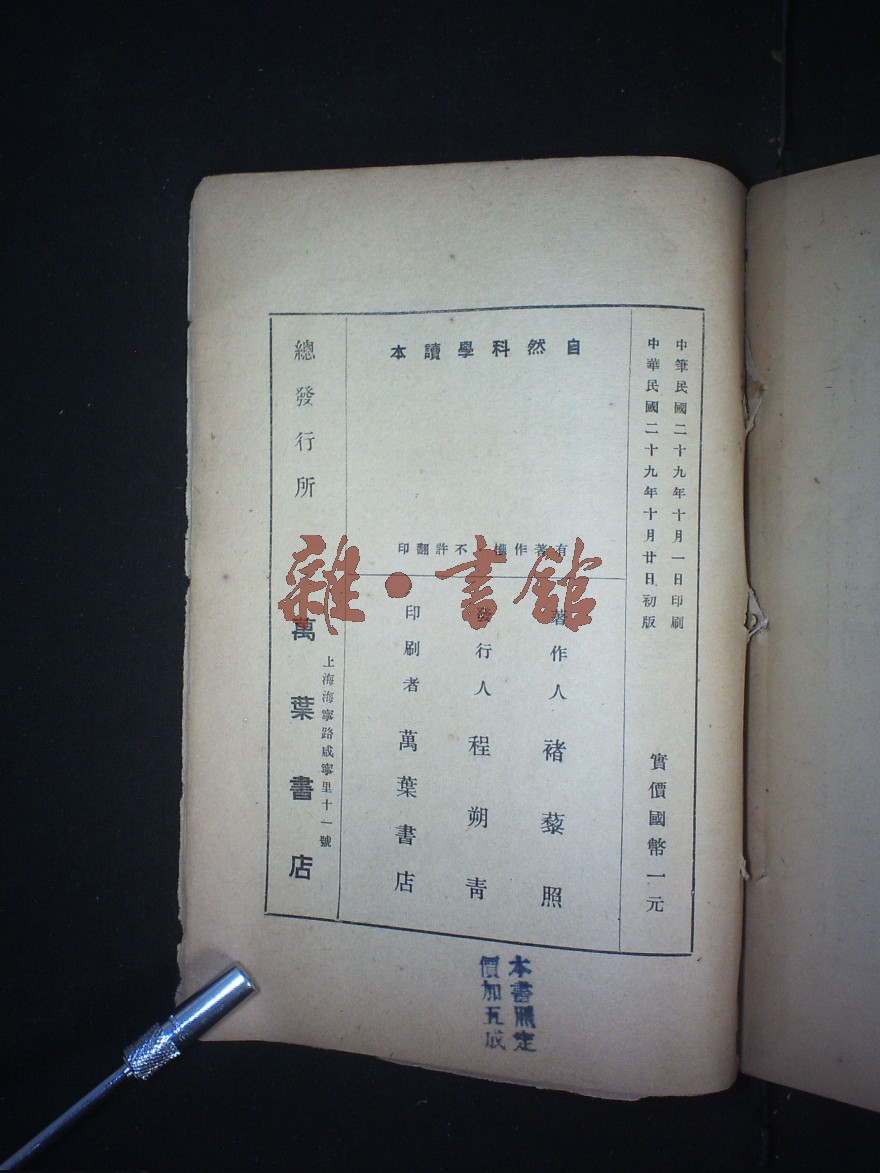 中華民國二十九年十月一日印刷
中華民國二十九年十月廿日初版
實價國幣一元
自然科學讀本
有著作權 不許翻印
著作人 褚藜照
發行人 程朔青
印刷者 萬葉書店
總發行所 萬葉書店
上海海寧路咸寧里十一號
雜·書館
本書照定
價加五成